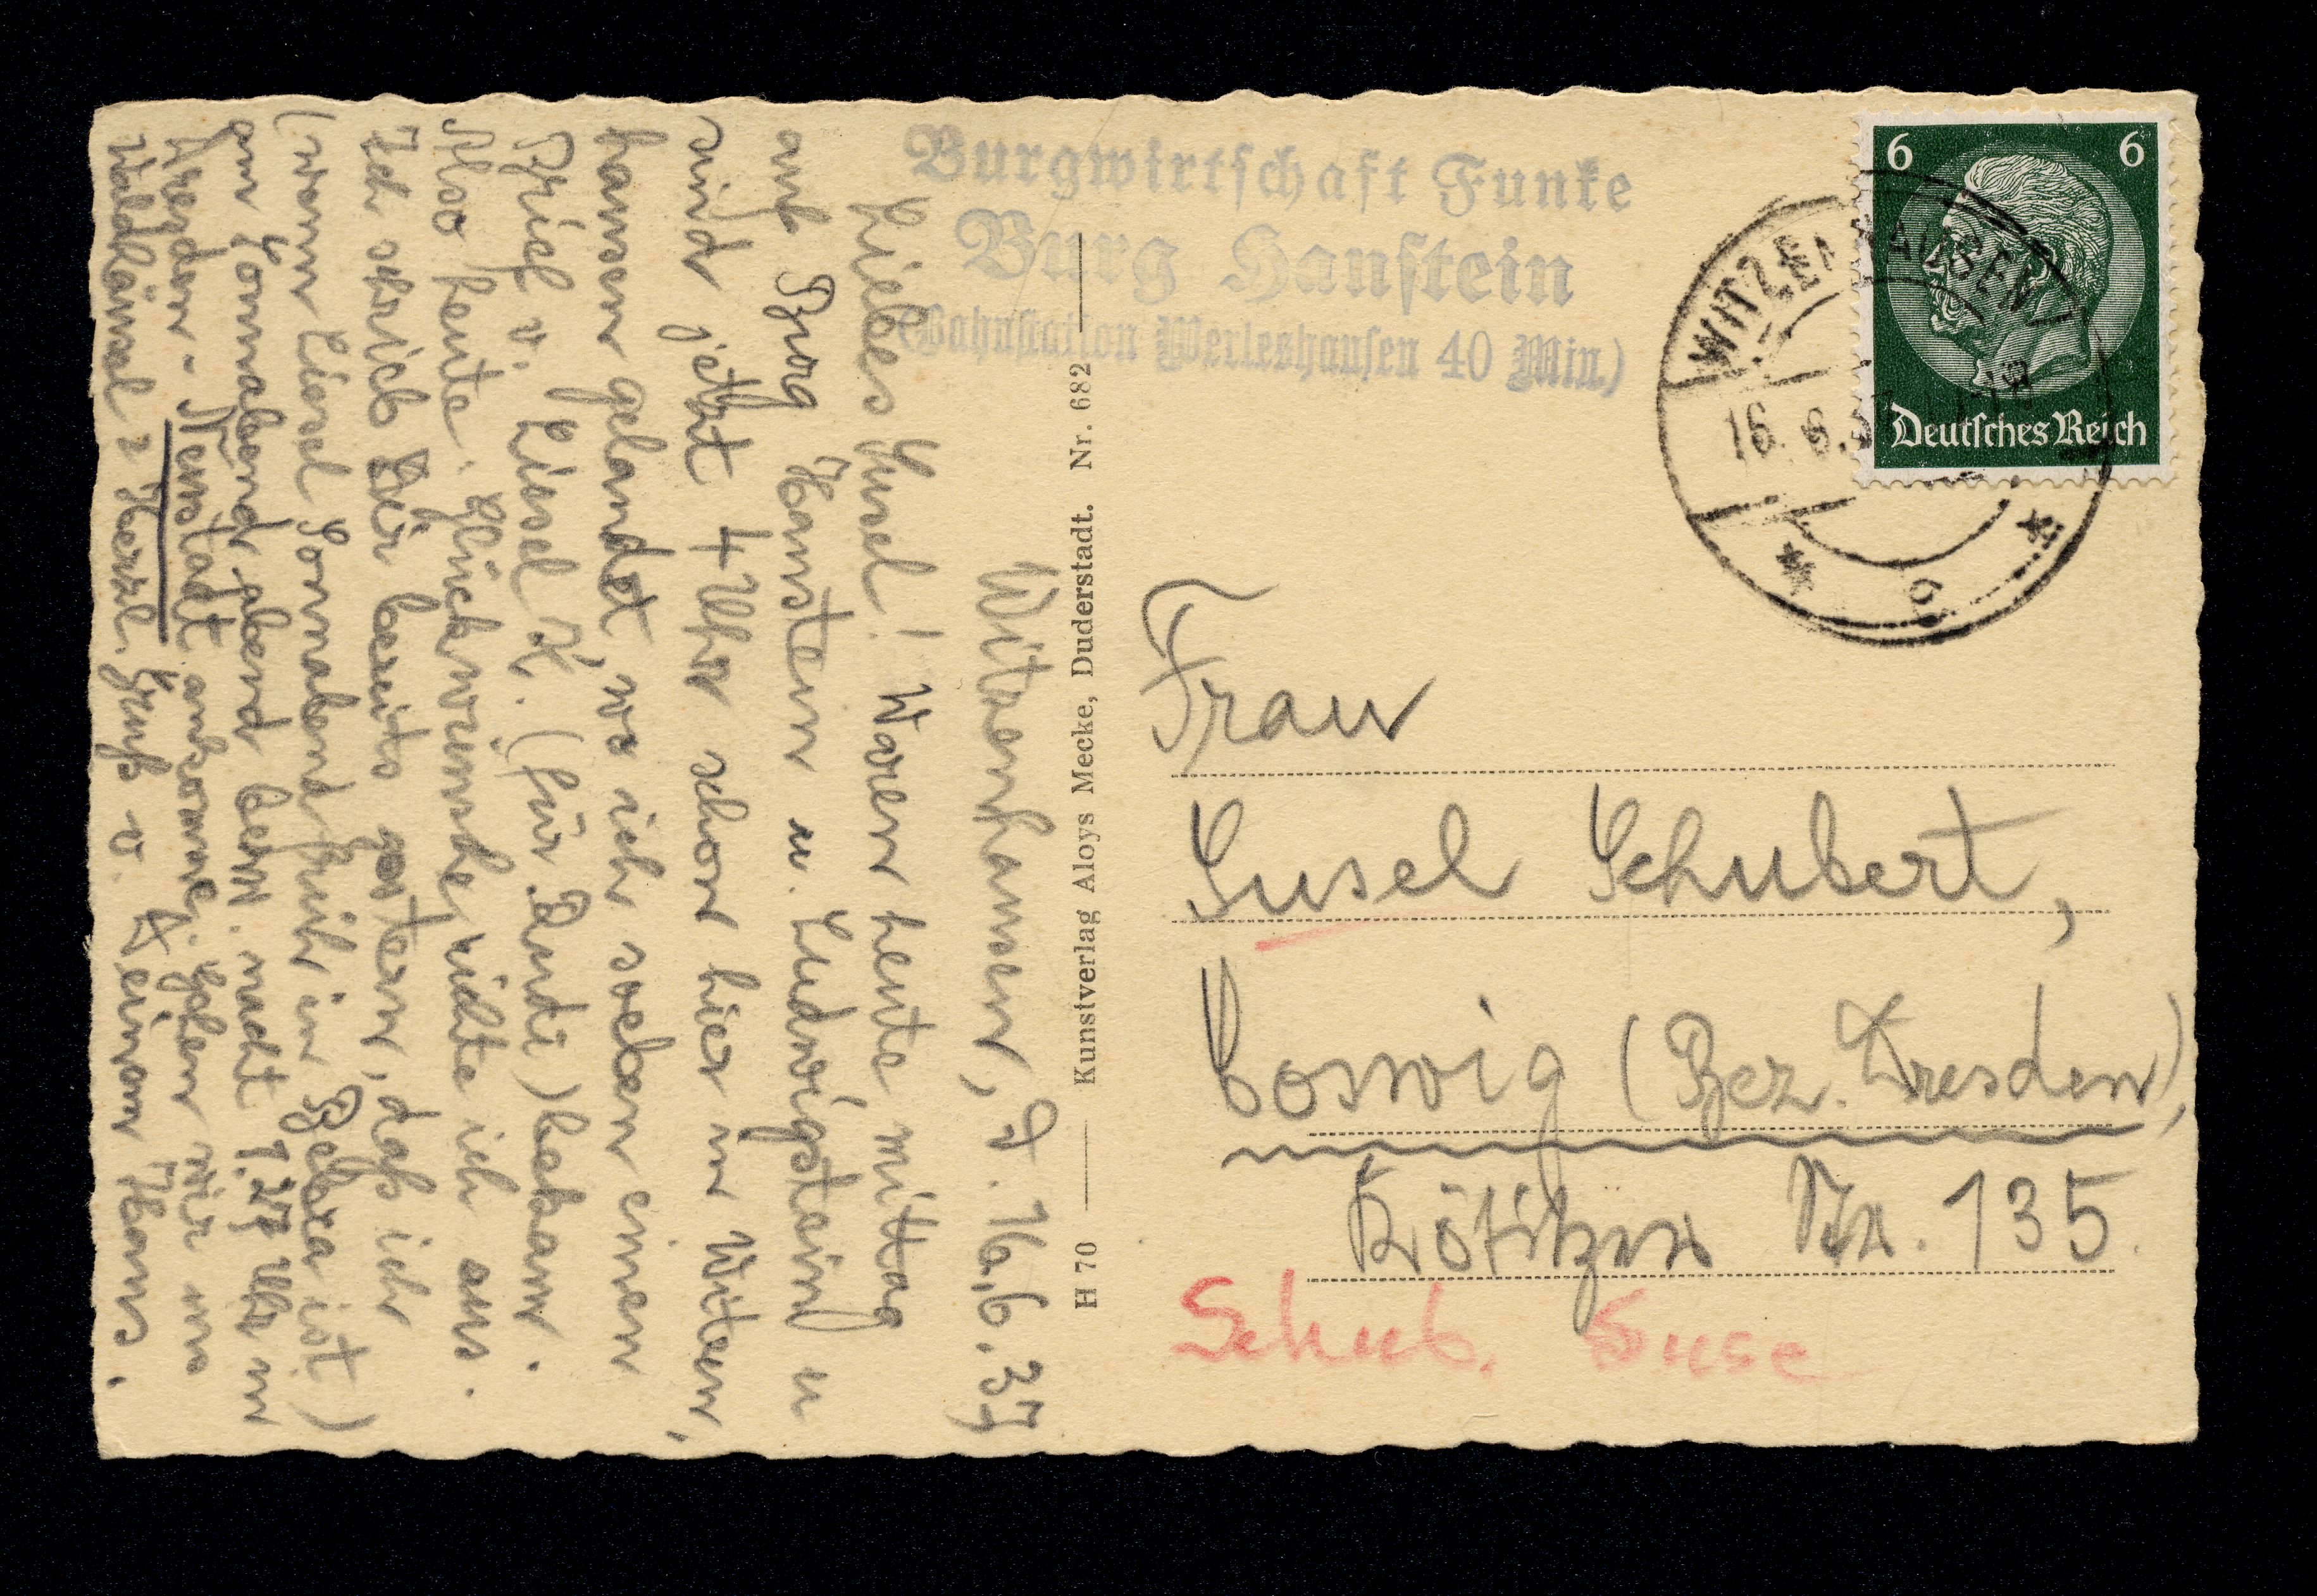 Burgwirtschaft Funke
Burg Hanstein
(Bahnstation Werleshausen 40 Min.)
6 6
Deutsches Reich
WITZENHAUSEN
16.6.37
c
Witzenhausen, d. 16.6.37
Liebes Susel! Waren heute mittag
auf Burg Hanstein u. Ludwigstein u
sind jetzt 4 Uhr schon hier in Witzen,
hausen gelandet, wo ich soeben einen
Brief v. Liesel K. (für Rudi) bekam.
Also heute. Glückwünsche richte ich aus.
Ich schrieb Dir bereits gestern, daß ich
(wenn Liesel Sonnabend früh in Bebra ist)
am Sonnabend abend bezw. nacht 1.27 Uhr in
Dresden-Neustadt ankomme. Gehen wir ins
Waldhäusel? Herzl. Gruß v. Deinem Hans.
H 70 Kunstverlag Aloys Mecke, Duderstadt. Nr. 682
Frau
Susel Schubert,
Coswig (Bez. Dresden),
Kötitzer Str. 135.
Schub. Suse